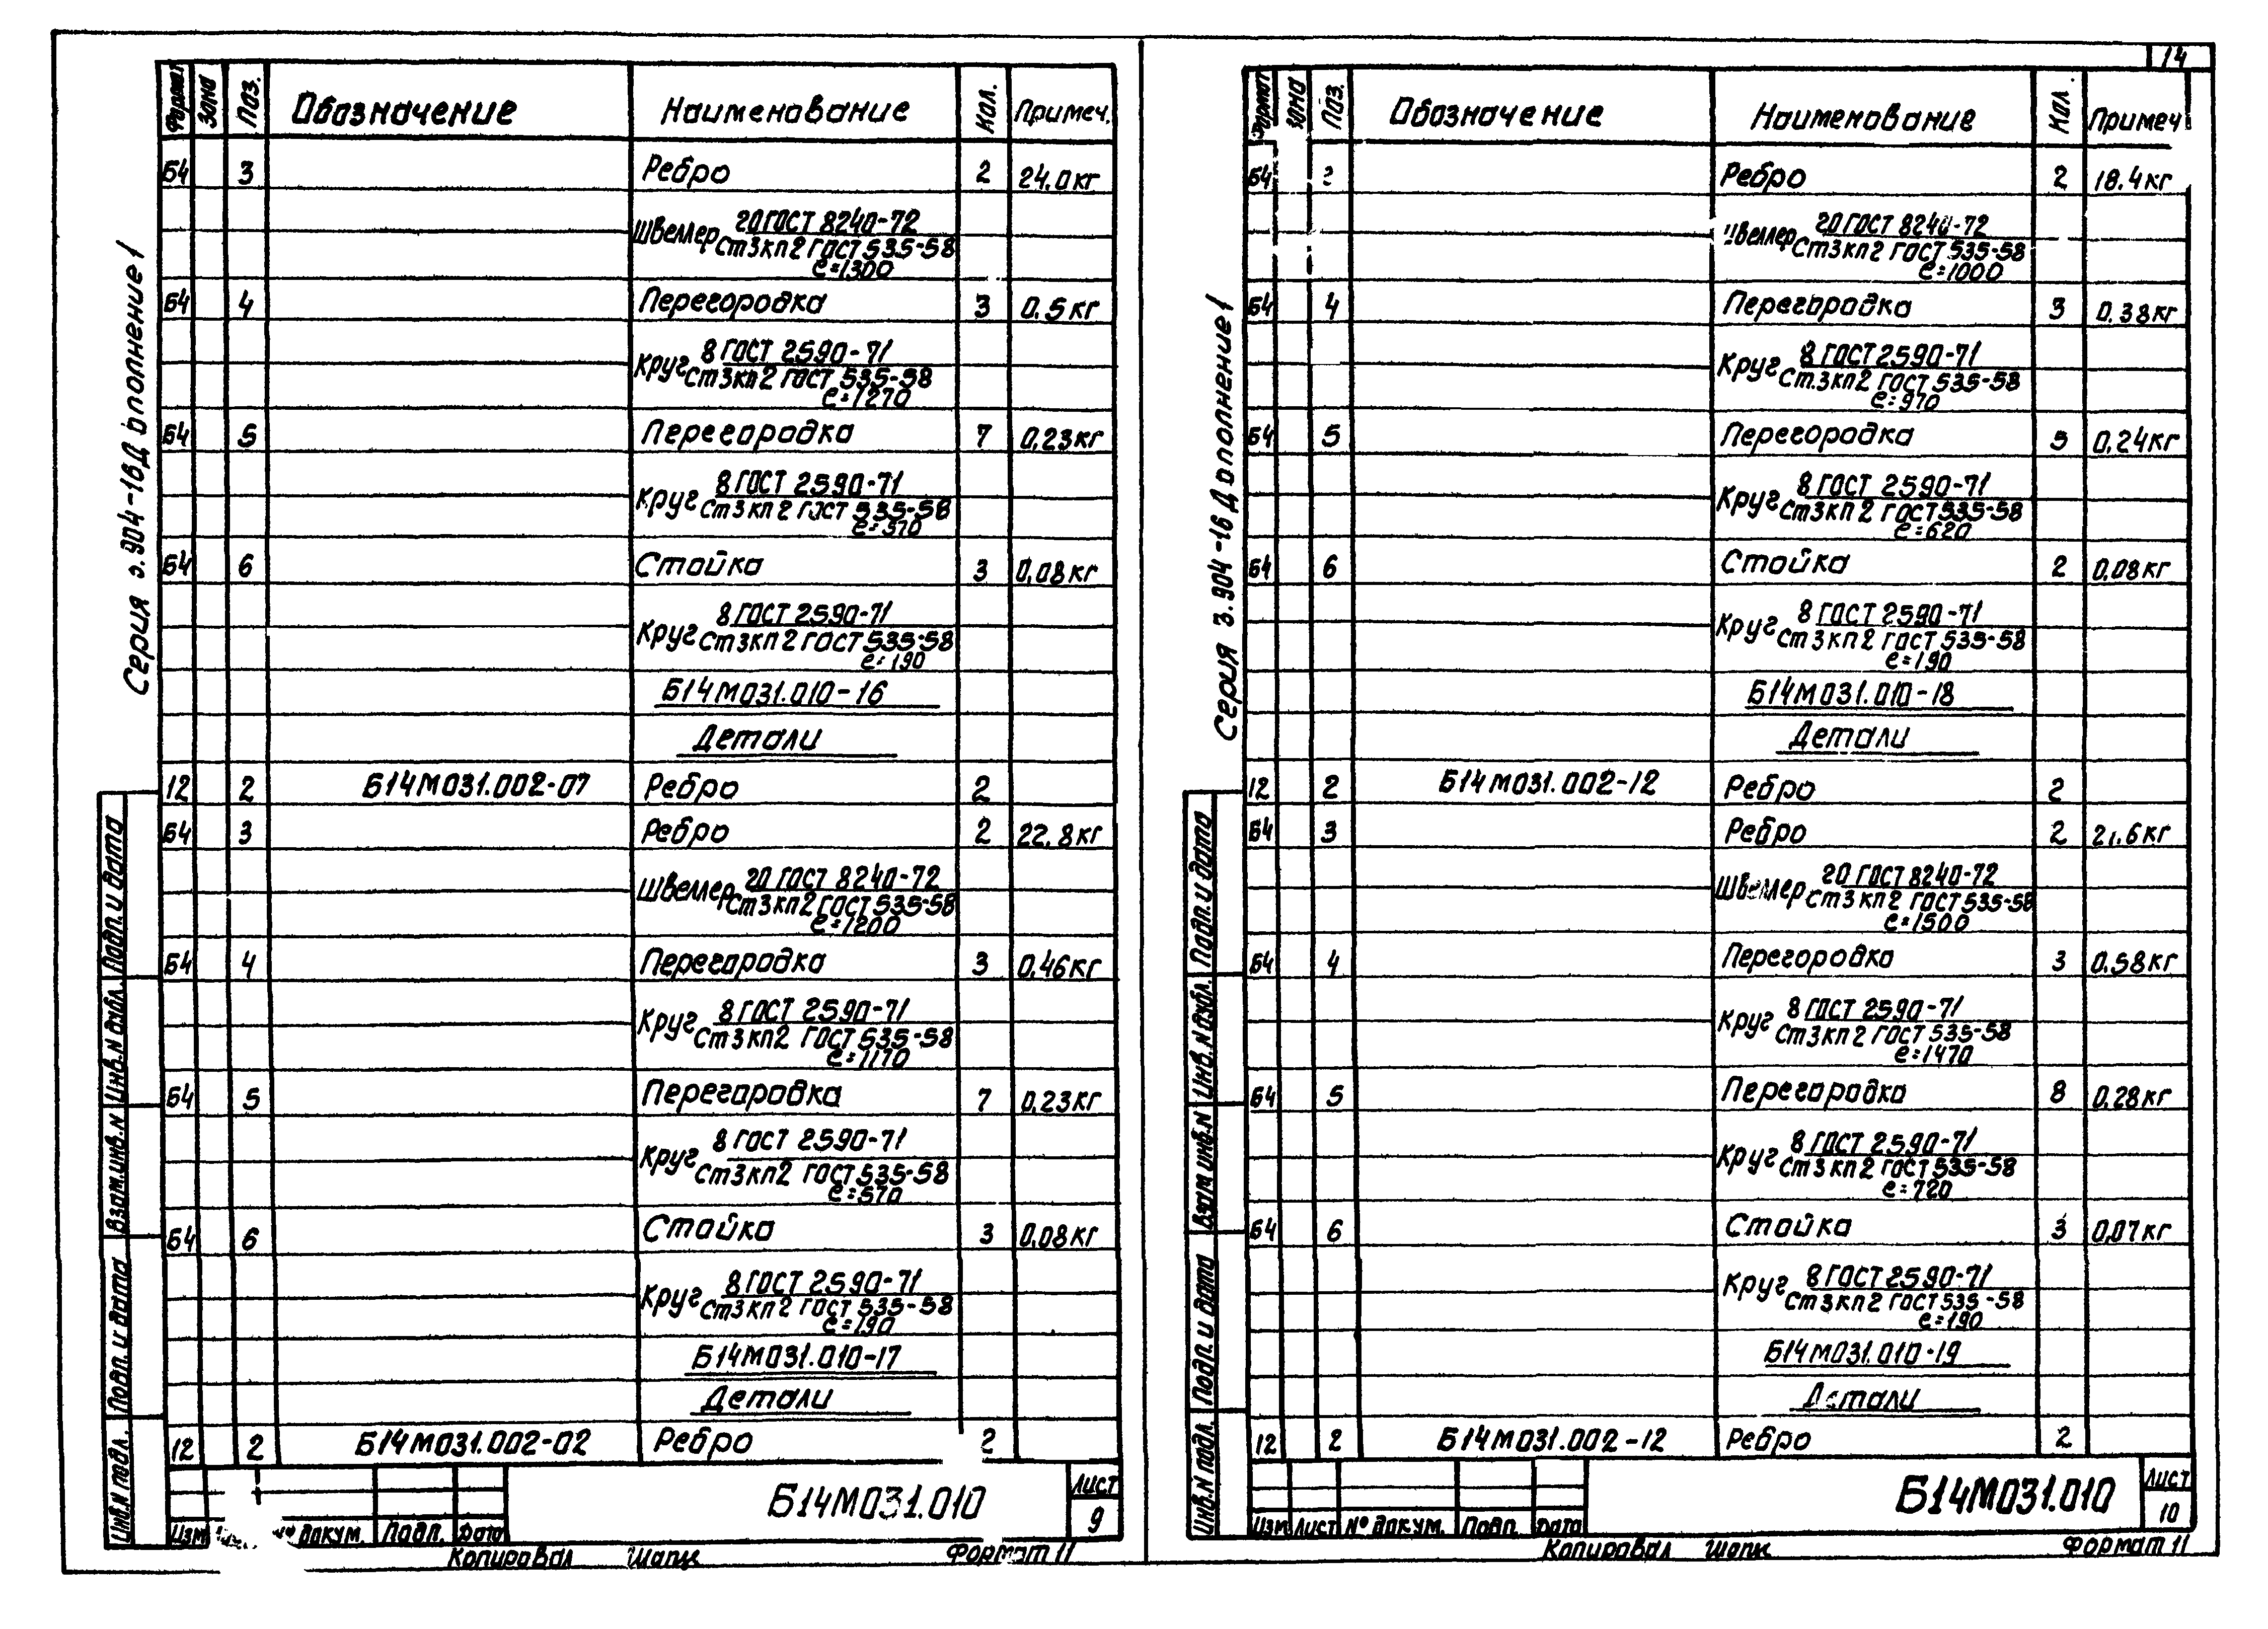 14
Серия 3.904-16 Дополнение 1
Формат Зона Поз. Обозначение Наименование Кол. Примеч.
Б4 3 Ребро 2 24.0кг
Швеллер 20 ГОСТ 8240-72
Ст3кп2 ГОСТ 535-58
ℓ=1300
Б4 4 Перегородка 3 0.5кг
Круг 8 ГОСТ 2590-71
Ст3кп2 ГОСТ 535-58
ℓ=1270
Б4 5 Перегородка 7 0.23кг
Круг 8 ГОСТ 2590-71
Ст3кп2 ГОСТ 535-58
ℓ=570
Б4 6 Стойка 3 0.08кг
Круг 8 ГОСТ 2590-71
Ст3кп2 ГОСТ 535-58
ℓ=190
Б14М031.010-16
Детали
12 2 Б14М031.002-07 Ребро 2
Б4 3 Ребро 2 22.8кг
Швеллер 20 ГОСТ 8240-72
Ст3кп2 ГОСТ 535-58
ℓ=1200
Б4 4 Перегородка 3 0.46кг
Круг 8 ГОСТ 2590-71
Ст3кп2 ГОСТ 535-58
ℓ=1170
Б4 5 Перегородка 7 0.23кг
Круг 8 ГОСТ 2590-71
Ст3кп2 ГОСТ 535-58
ℓ=570
Б4 6 Стойка 3 0.08кг
Круг 8 ГОСТ 2590-71
Ст3кп2 ГОСТ 535-58
ℓ=190
Б14М031.010-17
Детали
12 2 Б14М031.002-02 Ребро 2
Подп. и дата
Инв.N дубл.
Взам.инв.N
Подп. и дата
Инв.N подл.
Б14М031.010
Лист
9
Изм № докум. Подп. Дата
Копировал Шапк Формат 11
Серия 3.904-16 Дополнение 1
Формат Зона Поз. Обозначение Наименование Кол. Примеч
Б4 3 Ребро 2 18.4кг
Швеллер 20 ГОСТ 8240-72
Ст3кп2 ГОСТ 535-58
ℓ=1000
Б4 4 Перегородка 3 0.38кг
Круг 8 ГОСТ 2590-71
Ст.3кп2 ГОСТ 535-58
ℓ=970
Б4 5 Перегородка 5 0.24кг
Круг 8 ГОСТ 2590-71
Ст3кп2 ГОСТ 535-58
ℓ=620
Б4 6 Стойка 2 0.08кг
Круг 8 ГОСТ 2590-71
Ст3кп2 ГОСТ 535-58
ℓ=190
Б14М031.010-18
Детали
12 2 Б14М031.002-12 Ребро 2
Б4 3 Ребро 2 21.6кг
Швеллер 20 ГОСТ 8240-72
Ст3кп2 ГОСТ 535-58
ℓ=1500
Б4 4 Перегородка 3 0.58кг
Круг 8 ГОСТ 2590-71
Ст3кп2 ГОСТ 535-58
ℓ=1470
Б4 5 Перегородка 8 0.28кг
Круг 8 ГОСТ 2590-71
Ст3кп2 ГОСТ 535-58
ℓ=720
Б4 6 Стойка 3 0.07кг
Круг 8 ГОСТ 2590-71
Ст3кп2 ГОСТ 535-58
ℓ=190
Б14М031.010-19
Детали
12 2 Б14М031.002-12 Ребро 2
Подп. и дата
Инв.N дубл.
Взам инв.N
Подп. и дата
Инв.N подл.
Б14М031.010
Лист
10
Изм Лист № докум. Подп. Дата
Копировал Шапк Формат 11